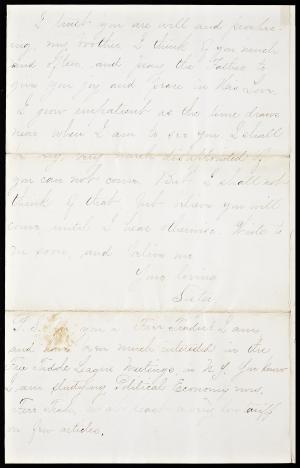 I trust you are well and
ing, my brother. I think of you much
and often, and pray the Father to
give you joy and Peace in His Love.
I grow impatient as the time draws
near when I am to see you, I shall
be very, very much disappointed if
you can not come. But I shall not
think of that but believe you will
come until I hear otherwise. Write to
me soon, and believe me
Your loving
Sister
P.S. Are you a Free Trader? I am
and have been much interested in the
Free Trade League Meetings in N.Y. You know
I am studying Political Economy now.
Free Trade, or at least a very low tariff
on few articles.